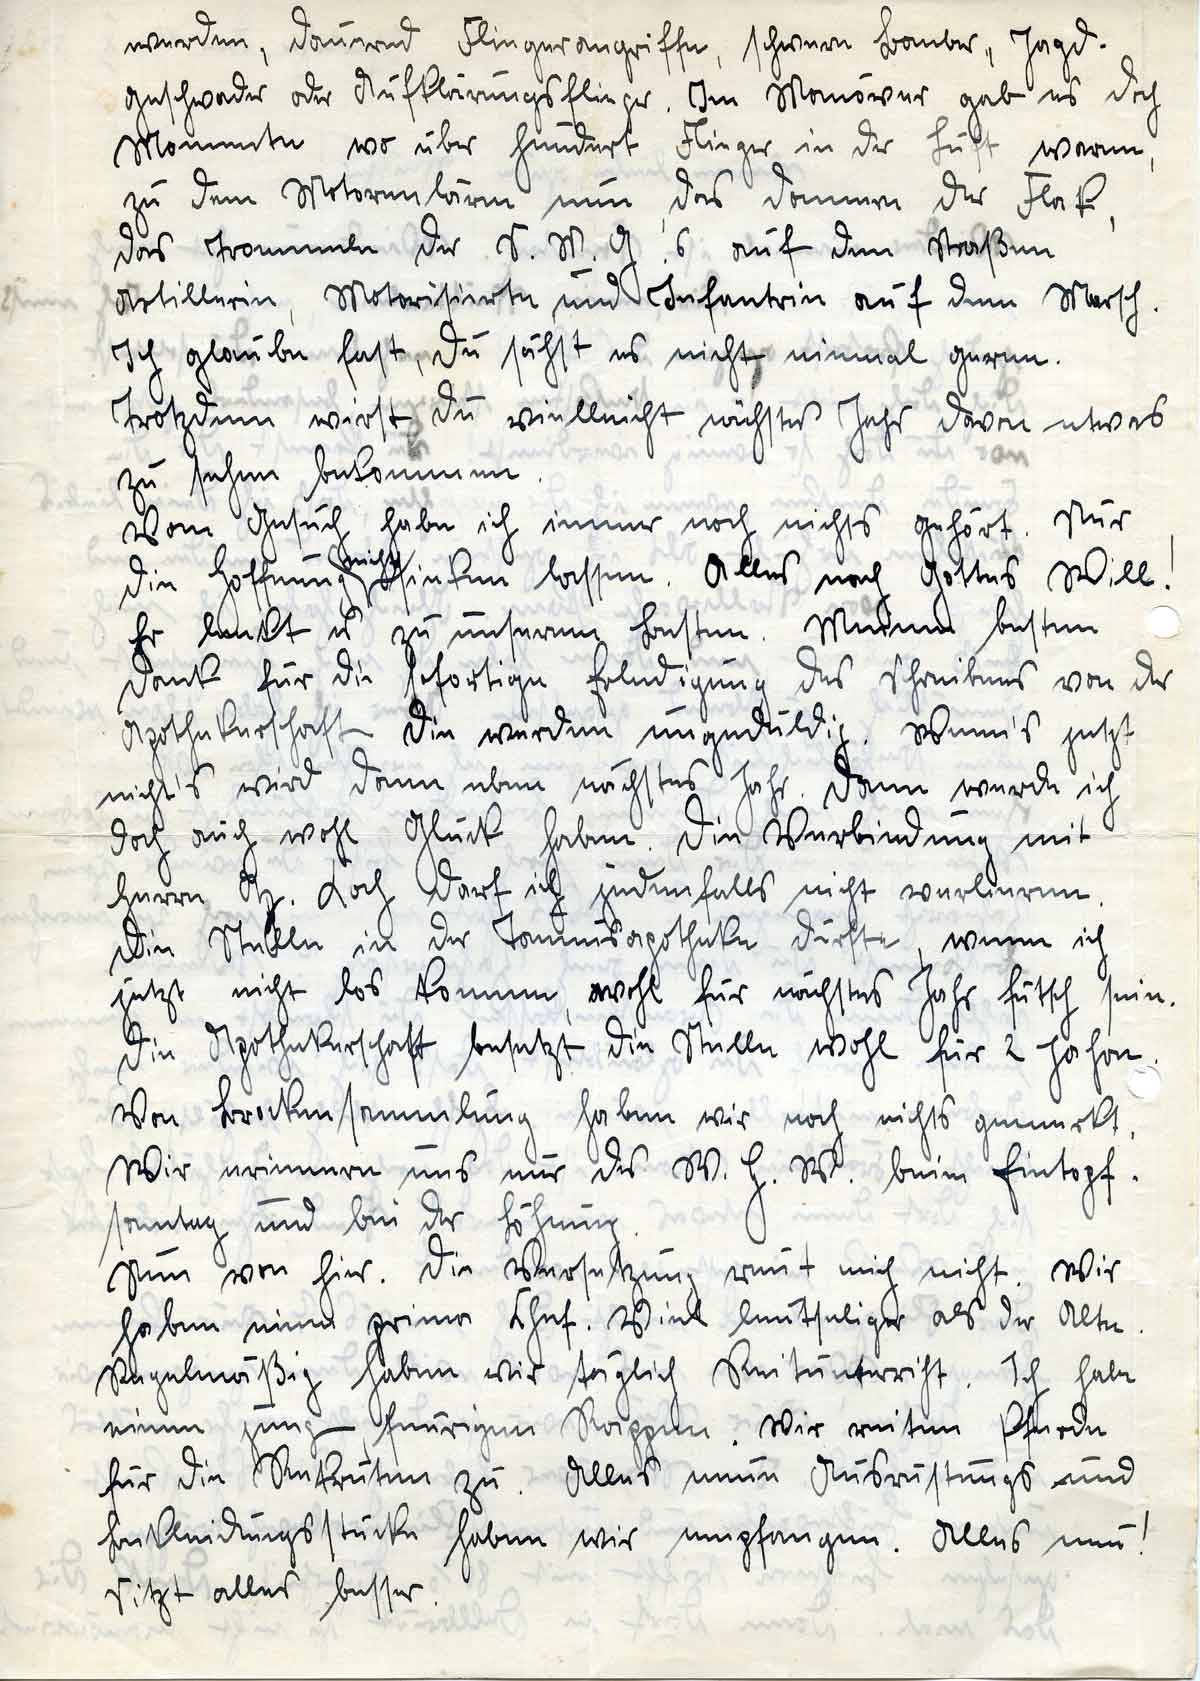 werden, dauernd Fliegerangriffe, schwere Bomber, Jagd-
geschwader oder Aufklärungsflieger. Im Manöver gab es doch
Momente wo über hundert Flieger in der Luft waren,
zu dem Motorenlärm nun das donnern der Flak,
das trommeln der S. M. G.'s auf den Straßen
Artillerie, Motorisierte und Infantrie auf dem Marsch.
Ich glaube fast, Du sähst es nicht einmal gerne.
Trotzdem wirst Du vielleicht nächstes Jahr davon etwas
zu sehen bekommen.
Vom Gesuch habe ich immer noch nichts gehört. Nur
die Hoffnung nicht sinken lassen. Alles nach Gottes Will!
Er lenkt es zu unserem Besten. Meinen besten
Dank für die sofortige Erledigung des Schreibens von der
Apothekerschaft Die werden ungeduldig. Wenn's jetzt
nicht's wird dann eben nächstes Jahr. Dann werde ich
doch auch wohl Glück haben. Die Verbindung mit
Herrn Ap. Koch darf ich jedenfalls nicht verlieren.
Die Stelle in der Taunusapotheke dürfte, wenn ich
jetzt nicht los komme, wohl für nächstes Jahr futsch sein.
Die Apothekerschaft besetzt die Stelle wohl für 2 Jahre.
Von Brockensammlung haben wir noch nichts gemerkt.
Wir erinnern uns nur des W. H. W. beim Eintopf-
sonntag und bei der Löhnung.
Nun von hier. Die Versetzung reut mich nicht. Wir
haben einen prima Chef. Viel leutseliger als der Alte.
Regelmäßig haben wir täglich Reitunterricht. Ich habe
einen jung-feurigen Rappen. Wir reiten Pferde
für die Rekruten zu. Alles neue Ausrüstungs und
Bekleidungsstücke haben wir empfangen. Alles neu!
Sitzt alles besser.